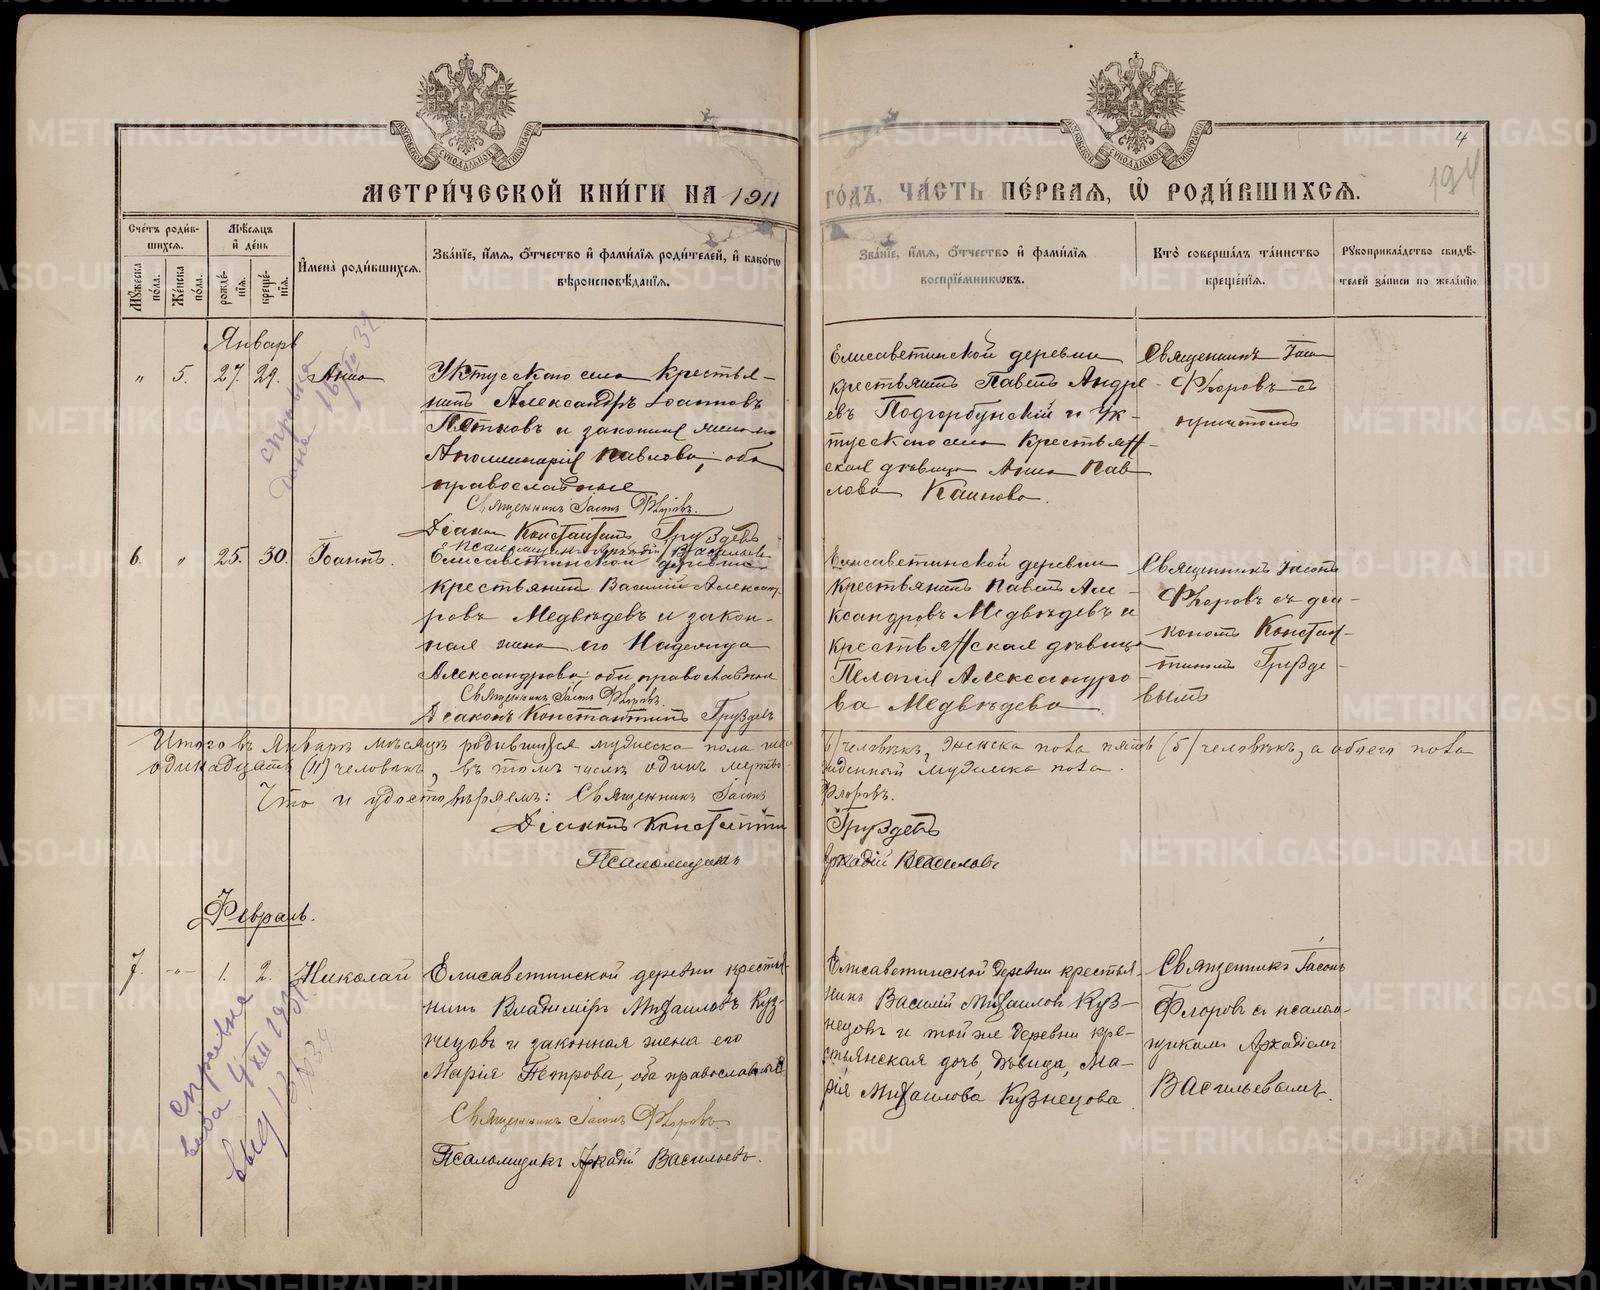 МЕТРИ́ЧЕСКОЙ КНИ́ГИ НА 1911 ГО́ДЪ, ЧА́СТЬ ПЕ́РВАЯ, Ѡ РОДИ́ВШИХСѦ.
4
194
Сче́тъ роди́в-
шихся.
Мꙋ́жеска по́ла.
Же́нска по́ла.
Мѣ́сяцъ
и́ де́нь
рожде́-
нїя.
креще́-
нїя.
И҆мена̀ роди́вшихся.
Зва́нїе, и҆́мя, ѻ҆́тчество и҆ фами́лїя роди́телей, и҆ како́гѡ
вѣроисповѣ́данїя.
Зва́нїе, и҆́мя, ѻ҆́тчество и҆ фами́лїя
воспрїе́мникѡвъ.
Кто̀ соверша́лъ та́инство
креще́нїя.
Рꙋкоприкла́дство свидѣ́-
телей за́писи по жела́нїю.
Январь
" 5. 27. 29. Анна
Уктусскаго села крестья-
нинъ Александръ Іоанновъ
Пятковъ и законная жена его
Аполлинарія Павлова, оба
православные
Священникъ Іасонъ Флоровъ.
Діаконъ Константинъ Груздевъ
Псаломщикъ Аркадій Васильевъ
Елисаветинской деревни
крестьянинъ Павелъ Андре-
евъ Подгорбунскій и Ук-
тусскаго села крестьян-
ская дѣвица Анна Пав
лова
Священникъ Іасонъ
Флоровъ съ
причтомъ
6. " 25. 30. Іоаннъ.
Елисаветинской деревни
крестьянинъ Василій Александ-
ровъ Медвѣдевъ и закон-
ная жена его Надежда
Александрова оба православные
Священникъ Іасонъ Флоровъ.
Діаконъ Константинъ Груздевъ
Елисаветинской деревни
крестьянинъ Павелъ Але-
ксандровъ Медвѣдевъ и
крестьянская дѣвица
Пелагія Александро-
ва Медвѣдева.
Священникъ Іасонъ
Флоровъ съ діа-
кономъ Констан-
тиномъ Грузде-
вымъ
Итого въ Январѣ мѣсяцѣ родившихся мужеска пола шесть (6) человѣкъ, женска пола пять (5) человѣкъ, а обоего пола
одинадцать (11) человѣкъ, въ томъ числѣ одинъ мертворожденный мужеска пола.
Что и удостовѣряемъ: Священникъ Іасонъ Флоровъ.
Діаконъ Константинъ Груздевъ
Псаломщикъ Аркадій Васильевъ
Февраль.
7. -"- 1. 2. Николай
Елисаветинской деревни крестья-
нинъ Владиміръ Михаиловъ Куз-
нецовъ и законная жена его
Марія Петрова, оба православные
Священникъ Іасонъ Флоровъ
Псаломщикъ Аркадій Васильевъ.
Елисаветинской деревни крестья-
нинъ Василій Михаиловъ Куз-
нецовъ и той же деревни кре-
стьянская дочь, дѣвица, Ма-
рія Михаилова Кузнецова.
Священникъ Іасонъ
Флоровъ съ псалом-
щикомъ Аркадіемъ
Васильевымъ.
METRIKI.GASO-URAL.RU